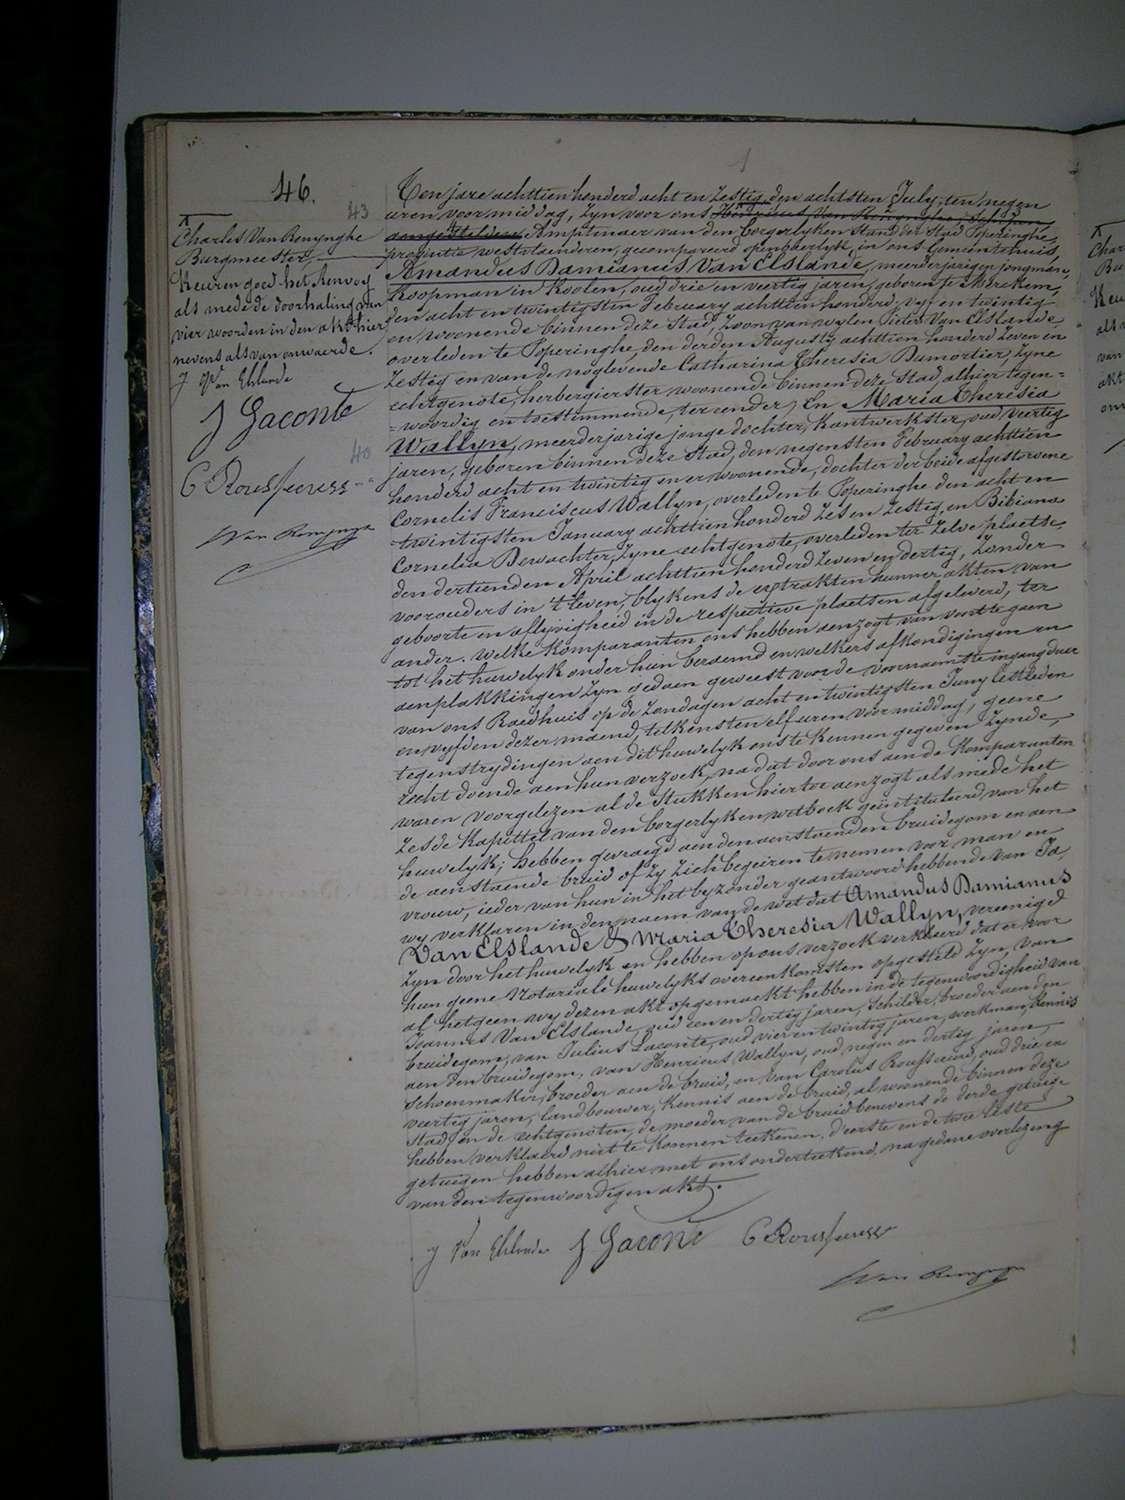 46.
43
Charles Van Renynghe
Burgmeester
Keuren goed het Renvoij
als mede de doorhaling van
vier woorden in den akt hier
nevens als van onwaerde.
J Van Elslande
J Laconte
40
C Rousseeuw
Van Renynghe
1
Ten jare achttien honderd acht en zestig den achtsten July, ten negen
uren voor middag, zyn voor ons
Amptenaer van den borgerlyken stand der stad Poperinghe,
provintie westvlaenderen, gecompareerd openbaerlyk, in ons Gemeentehuis
Amandus Damianus Van Elslande, meerderjarigen jongman,
koopman in koolen, oud drie en veertig jaren, geboren te Merckem,
den acht en twintigsten February achttien honderd vyf en twintig
en woonende binnen deze stad, Zoon van wylen Pieter Van Elslande,
overleden te Poperinghe, den derden Augusty achttien honderd zeven en
zestig en van de nog levende Catharina Theresia Dumortier, zyne
echtgenote, herbergierster woonende binnen deze stad, alhier tegen=
=woordig en toestemmende, ter eender; En Maria Theresia
Wallyn, meerderjarige jonge dochter, kantwerkster, oud veertig
jaren, geboren binnen deze stad, den negensten February achttien
honderd acht en twintig en er woonende, dochter der beide afgestorvene
Cornelis Franciscus Wallyn, overleden te Poperinghe den acht en
twintigsten January achttien honderd zes en zestig, en Bibiana
Cornelia Dewachter, zyne echtgenote, overleden ter zelve plaetse,
den dertienden April achttien honderd zeven en dertig, zonder
voorouders in 't leven, blykens de extrakten hunner akten van
geboorte en aflyvigheid in de respective plaetsen afgeleverd, ter
ander. welke komparanten ons hebben aenzogt van voort te gaen
tot het huwelyk onder hun beraemd en welkers afkondigingen en
aenplakkingen zyn gedaen geweest voor de voornaemste ingangdeur
van ons Raedhuis op de zondagen acht en twintigsten Juny lestleden
en vyfden dezer maend, telkens ten elf uren voormiddag, geene
tegenstrydingen aen dit huwelyk ons te kennen gegeven zynde,
recht doende aen hun verzoek, na dat door ons aen de komparanten
waren voorgelezen al de stukken hiertoe aenzogt als mede het
zesde Kapittel van den borgerlyken wetboek geïntituleerd van het
huwelyk, hebben gevraegd aen den aenstaenden bruidegom en aen
de aenstaende bruid of zy zich begeiren te nemen voor man en
vrouw, ieder van hun in het byzonder geantwoord hebbende van Ja,
wy verklaren in den naem van de wet dat Amandus Damianus
Van Elslande & Maria Theresia Wallyn, vereenigd
zyn door het huwelyk en hebben op ons verzoek verklaerd dat er voor
hun geene Notariale huwelyks overeenkomsten opgesteld zyn, van
al hetgeen wy dezen akt opgemaekt hebben in de tegenwoordigheid van
Joannes Van Elslande, oud een en dertig jaren, schilder, broeder aen den
bruidegom, van Julius Laconte, oud vier en twintig jaren, werkman, kennis
aen den bruidegom, van Henricus Wallyn, oud negen en dertig jaren,
schoenmaker, broeder aen de bruid, en van Carolus Rousseeuw, oud drie en
veertig jaren, landbouwer, kennis aen de bruid, al woonende binnen deze
stad, en de echtgenoten, de moeder van de bruid benevens de derde getuige
hebben verklaerd niet te konnen teekenen, d'eerste en de twee leste
getuigen hebben alhier met ons onderteekend, na gedane overlezing
van den tegenwoordigen akt.
J Van Elslande J Laconte C Rousseeuw
Van Renynghe